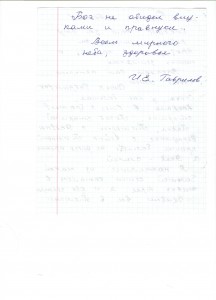 Бог не обидел вну-
ками и правнуки..
Всем мирного
неба, здоровья
И.Е. Гаврилов